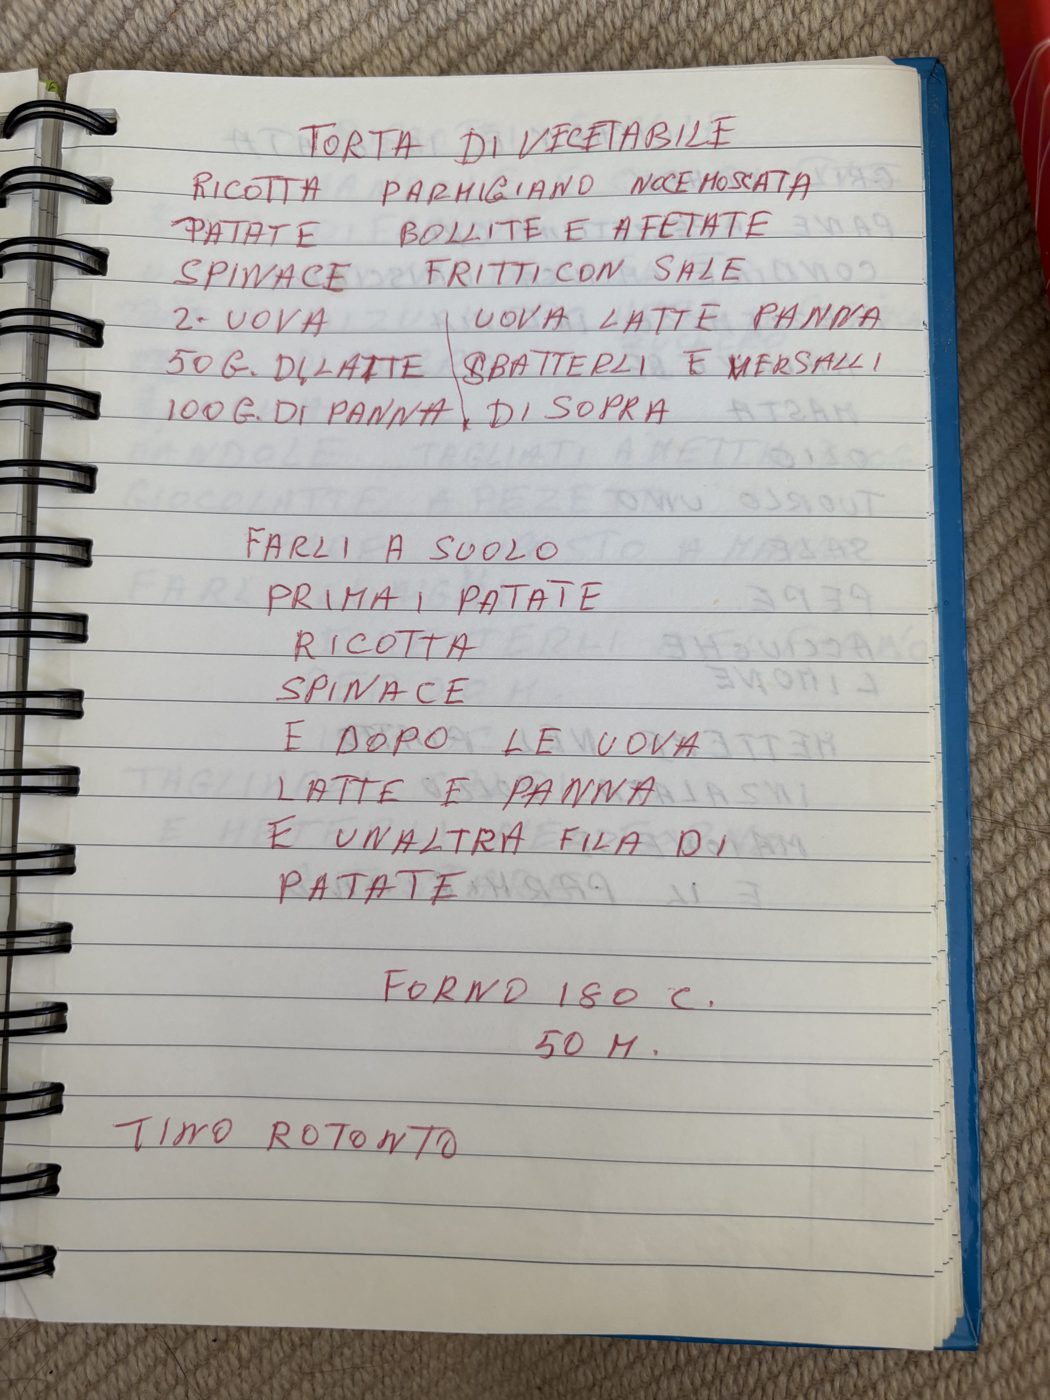 TORTA DI VECETABILE
RICOTTA PARMIGIANO NOCE MOSCATA
PATATE BOLLITE E AFETATE
SPINACE FRITTI CON SALE
2. UOVA
50 G. DI LATTE
100 G. DI PANNA
UOVA LATTE PANNA
SBATTERLI E MERSALLI
DI SOPRA
FARLI A SUOLO
PRIMA I PATATE
RICOTTA
SPINACE
E DOPO LE UOVA
LATTE E PANNA
E UNALTRA FILA DI
PATATE
FORNO 180 C.
50 M.
TINO ROTONTO